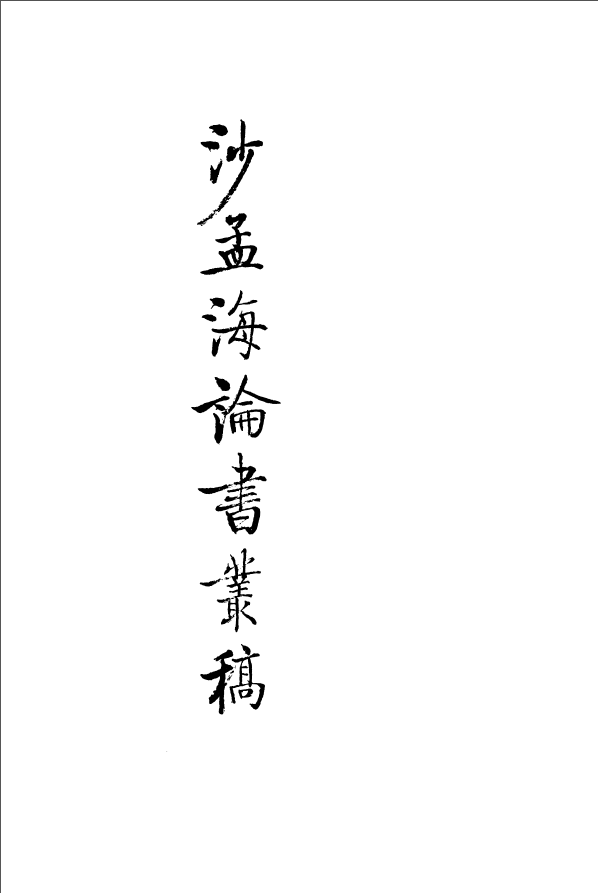 沙孟海論書叢稿